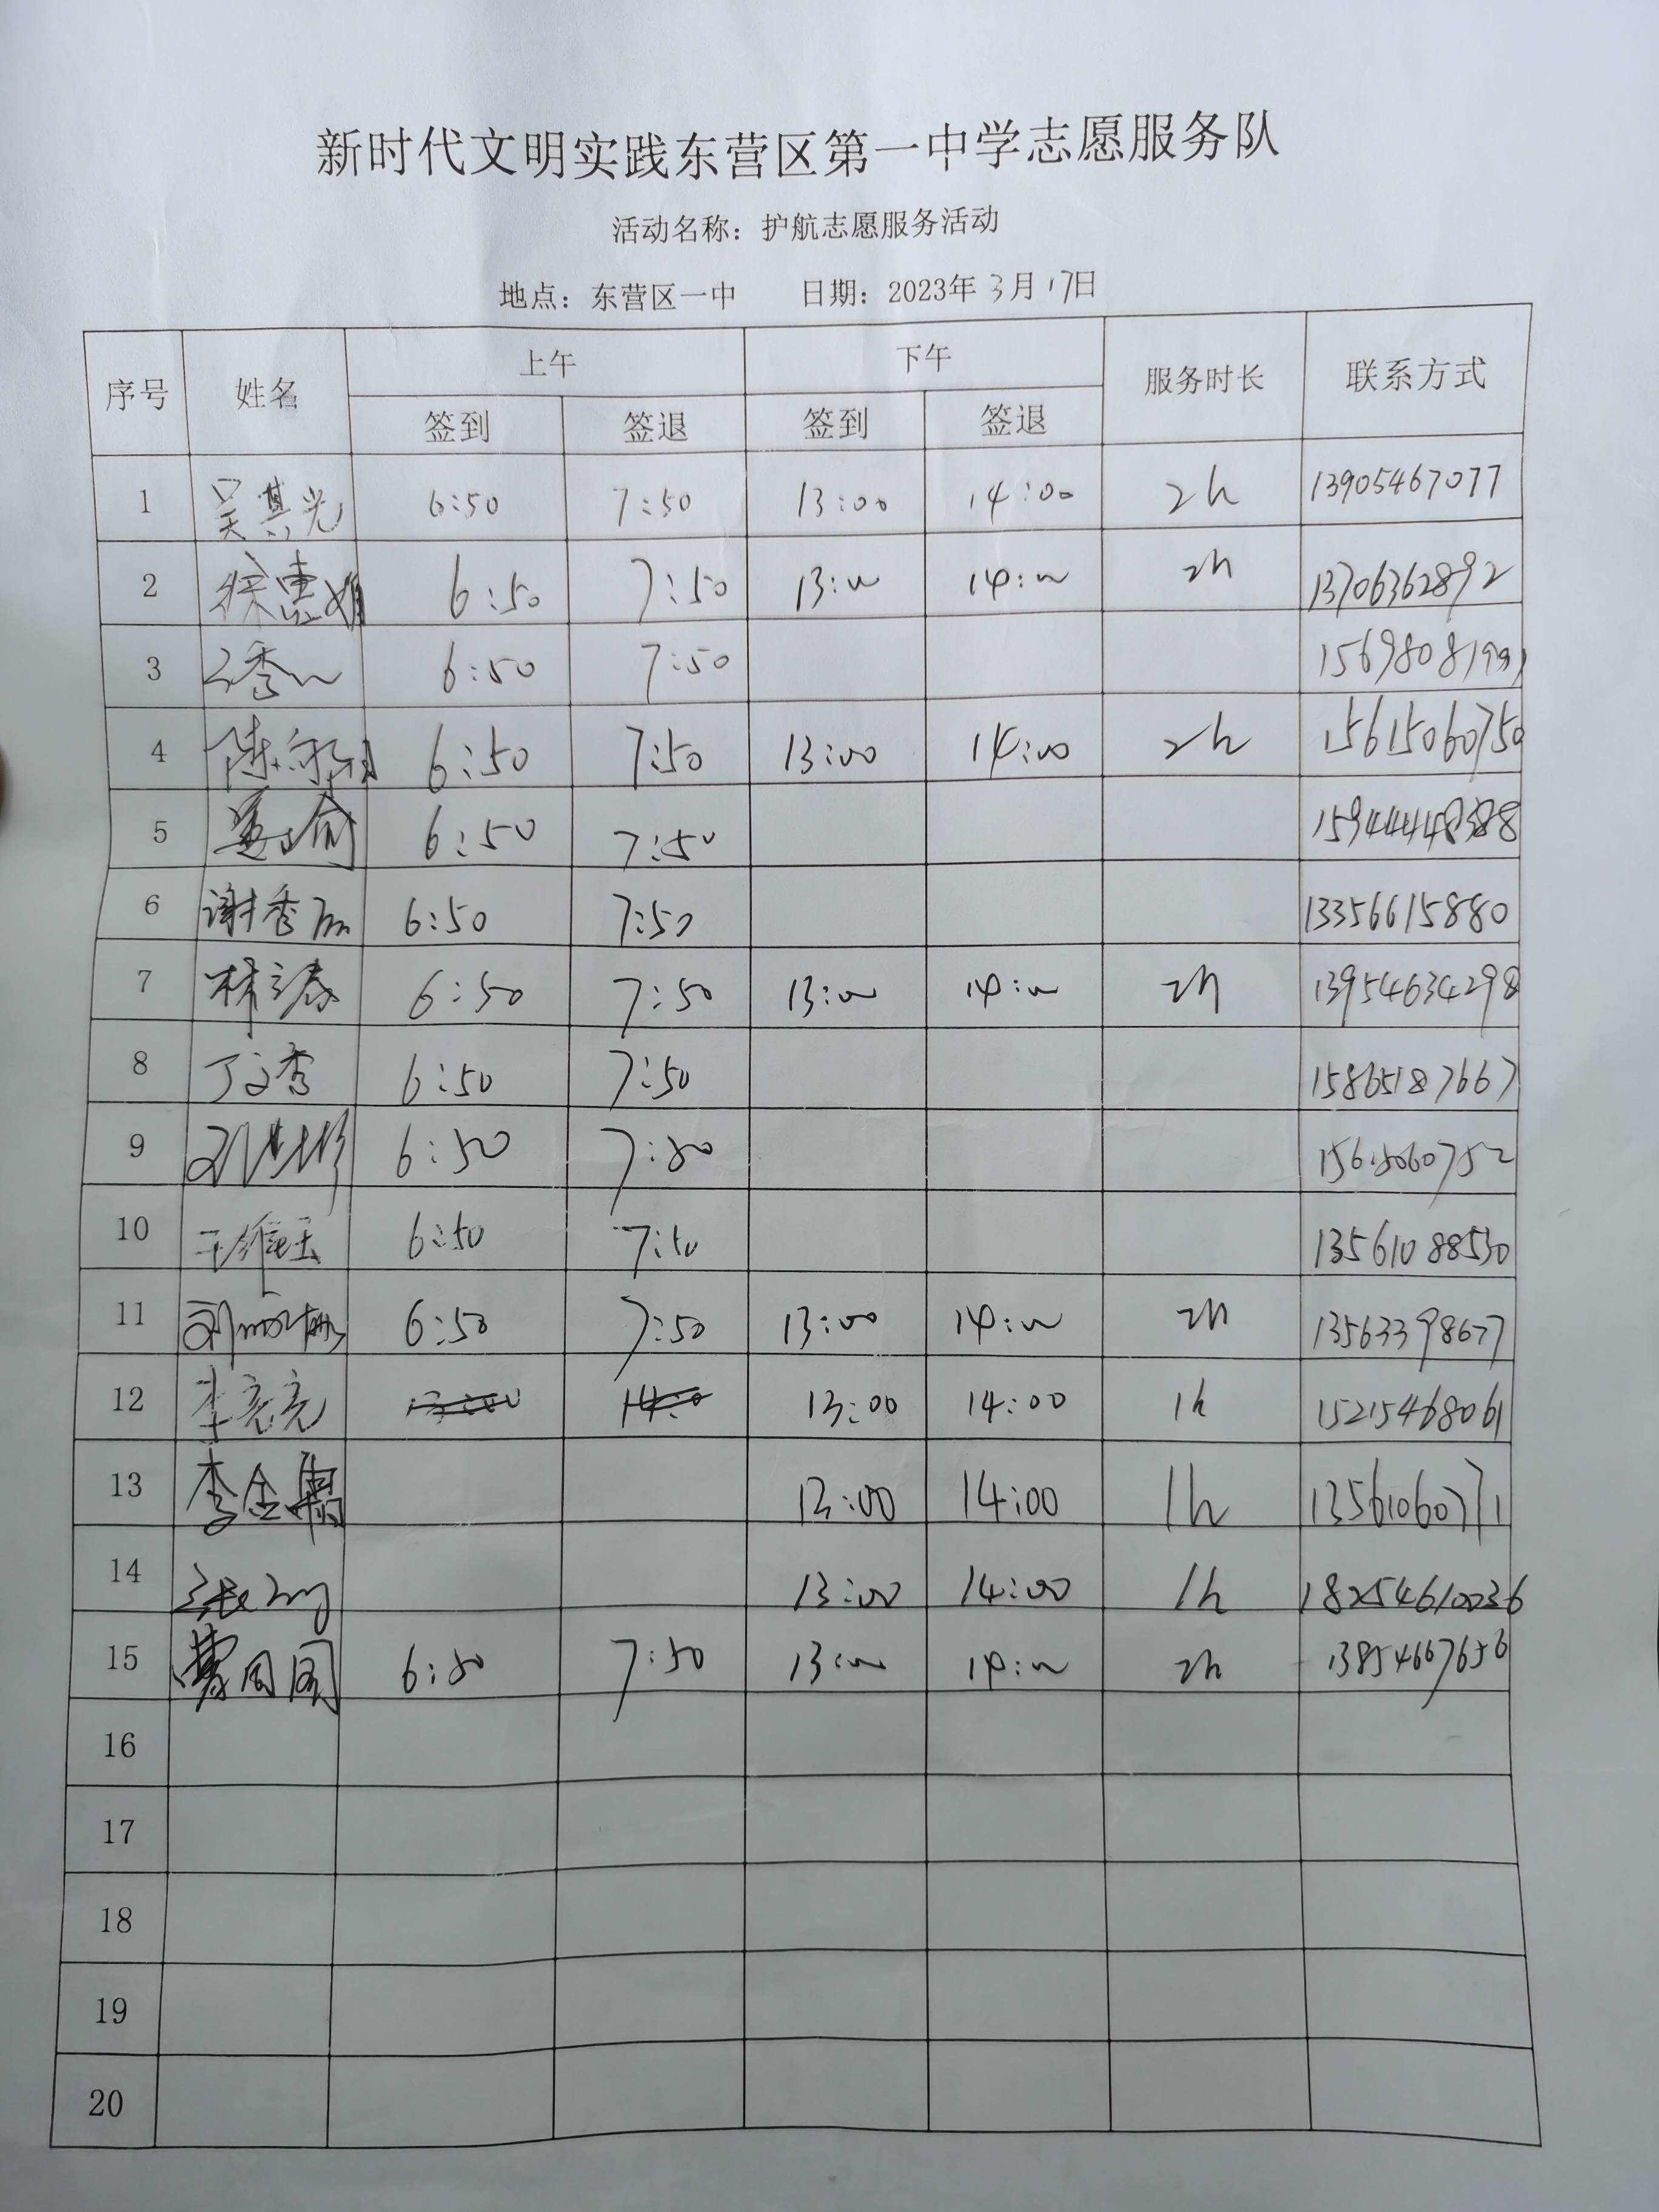 新时代文明实践东营区第一中学志愿服务队
活动名称：护航志愿服务活动
地点：东营区一中 日期：2023年3月17日
序号 姓名 上午 下午 服务时长 联系方式
签到 签退 签到 签退
1 吴其光 6:50 7:50 13:00 14:00 2h 13905467077
2 徐惠娟 6:50 7:50 13:00 14:00 2h 13706362892
3 6:50 7:50
4 6:50 7:50 13:00 14:00 2h 15615060750
5 6:50 7:50
6 谢秀丽 6:50 7:50 13356615880
7 林立春 6:50 7:50 13:00 14:00 2h 13954634298
8 丁文秀 6:50 7:50 15865187667
9 6:50 7:50 15615060752
10 王维玉 6:50 7:50 13561088530
11 6:50 7:50 13:00 14:00 2h 13563398677
12 李亮亮 13:00 14:00 13:00 14:00 1h 15215468061
13 13:00 14:00 1h 13561060771
14 13:00 14:00 1h 18254610036
15 6:50 7:50 13:00 14:00 2h 13854667656
16
17
18
19
20